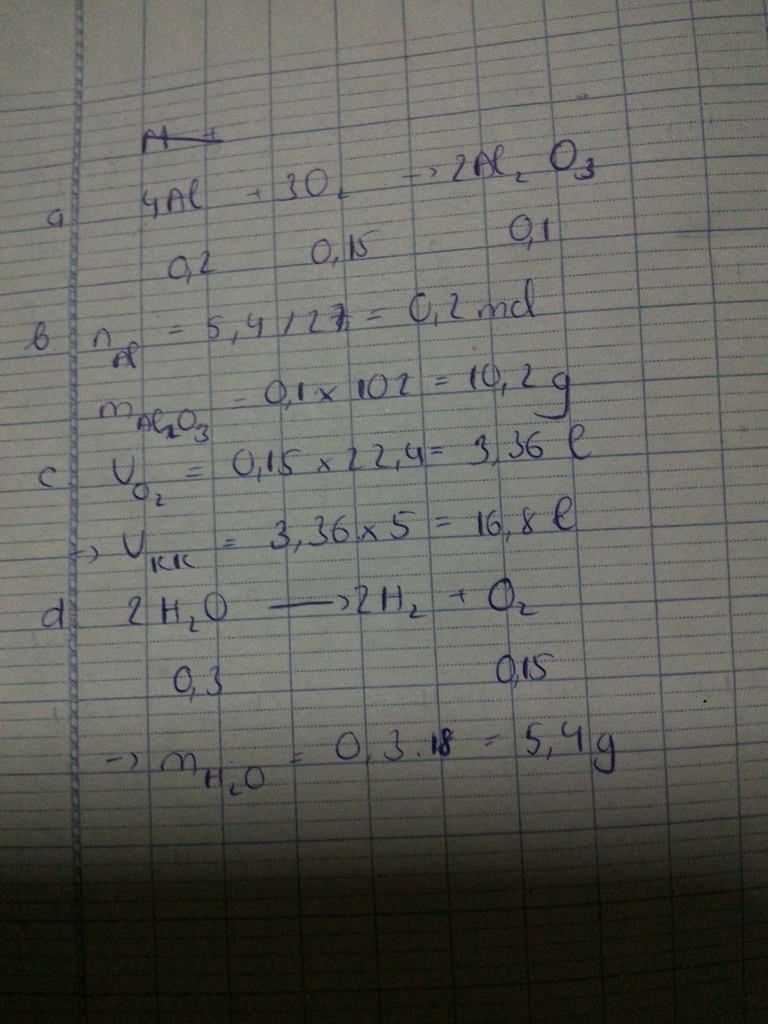 a 4Al + 3O₂ → 2Al₂O₃
0,2 0,15 0,1
b n_Al = 5,4 / 27 = 0,2 mol
m_Al₂O₃ = 0,1 x 102 = 10,2 g
c V_O₂ = 0,15 x 22,4 = 3,36 l
→ V_KK = 3,36 x 5 = 16,8 l
d 2H₂O → 2H₂ + O₂
0,3 0,15
→ m_H₂O = 0,3 . 18 = 5,4 g